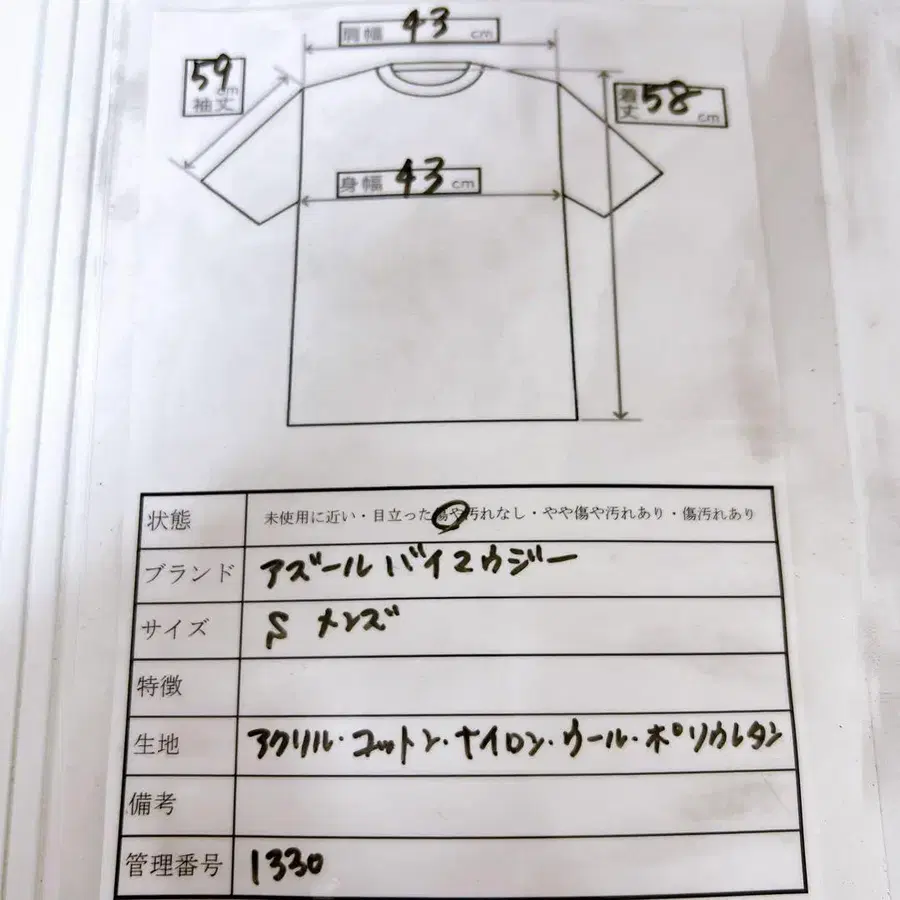 肩幅 43 cm
59 cm
袖丈
着丈 58 cm
身幅 43 cm
状態 未使用に近い・目立った傷や汚れなし・やや傷や汚れあり・傷汚れあり
ブランド アズールバイマウジー
サイズ S メンズ
特徴
生地 アクリル・コットン・ナイロン・ウール・ポリウレタン
備考
管理番号 1330